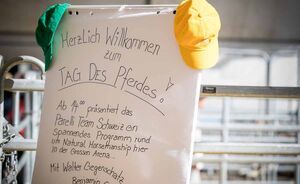 Herzlich Willkommen
zum
TAG DES Pferdes!
Ab 14⁰⁰ präsentiert das
Parelli Team Schweiz ein
Spannendes Programm rund
um Natural Horsemanship hier
in der Grossen Arena...
Mit Walter Gegenschatz
Benjamin